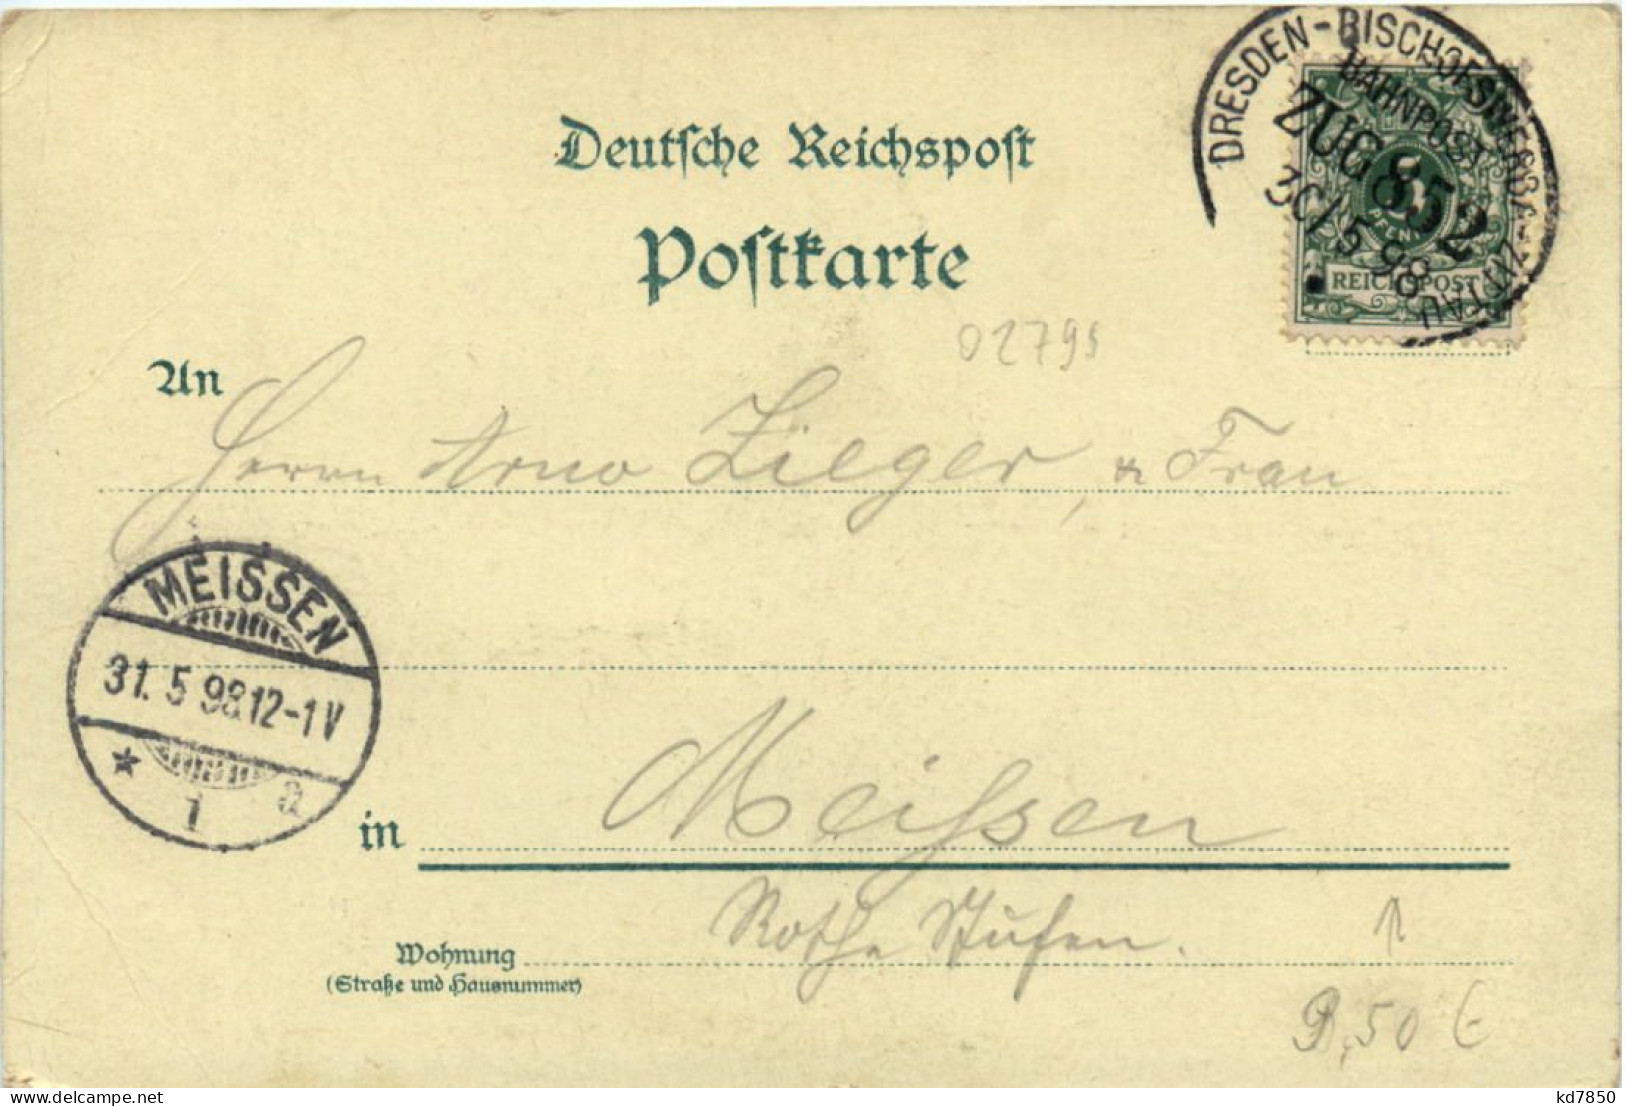 DRESDEN-BISCHOFSWERDA-ZITTAU
BAHNPOST
ZUG 852
30/5 98
PFENNIG
REICHSPOST
Deutsche Reichspost
Postkarte
02795
An Herrn Arno Zieger, & Frau
MEISSEN
31. 5 98 12-1 V
* 1 a
in Meißen
Wohnung Rothe Stufen.
(Straße und Hausnummer)
9,50 €
kd7850